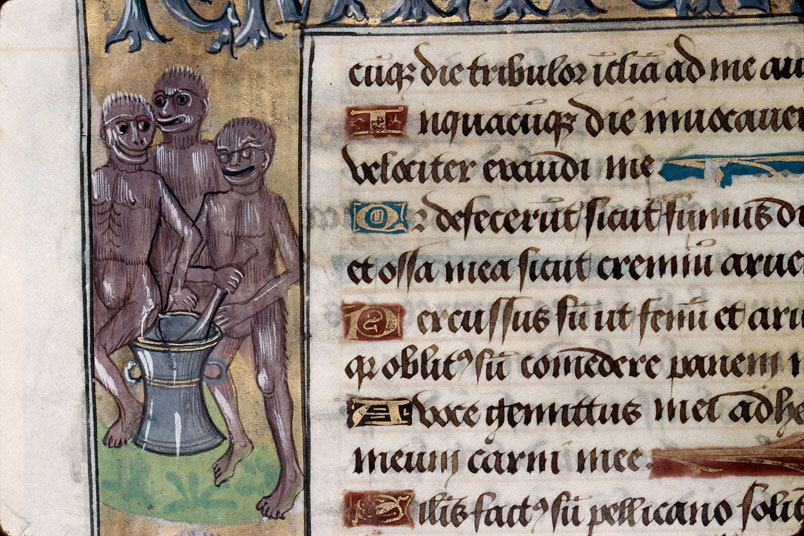 cūqꝫ die tribulor īclīa ad me au
In quacūqꝫ die inuocauer
velociter exaudi me
Qr defecerūt sicut fumus d
et ossa mea sicut cremiū arue
Percussus sū ut fenū et aru
qr oblitꝰ sū comedere panem m
A voce gemittus mei adhe
meum carni mee.
Silīs factꝰ sū pellicano solit